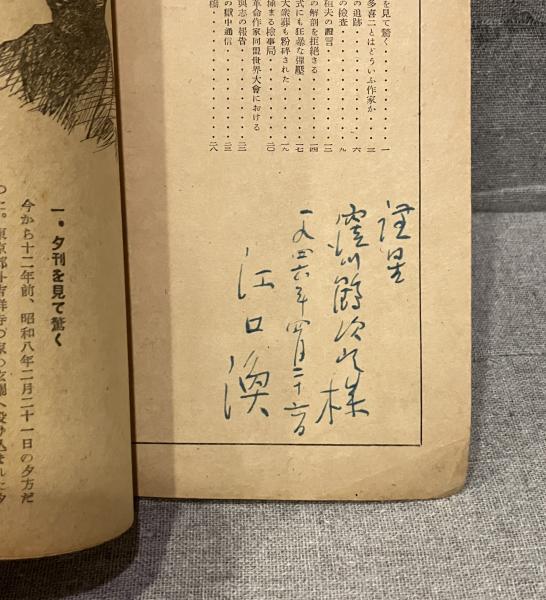 を見て驚く・・・・・・・・・一
多喜二とはどういふ作家か・・三
の追跡・・・・・・・・・・六
の檢査・・・・・・・・・・九
恒夫の證言・・・・・・・・一二
の解剖を拒絕さる・・・・・一四
式にも狂暴な彈壓・・・・・一七
大衆葬も粉碎された・・・・一九
極まる檢事局・・・・・・・二〇
革命作家同盟世界大會における
與志の報告・・・・・・・・二三
の獄中通信・・・・・・・・二三
橋・・・・・・・・・・・・二八
謹呈
窪川鶴次郎様
一九四六年四月二十六日
江口渙
一・夕刊を見て驚く
今から十二年前、昭和八年二月二十一日の夕方だ
つた。東京都外吉祥寺の家の玄關へ投げ込まれた夕